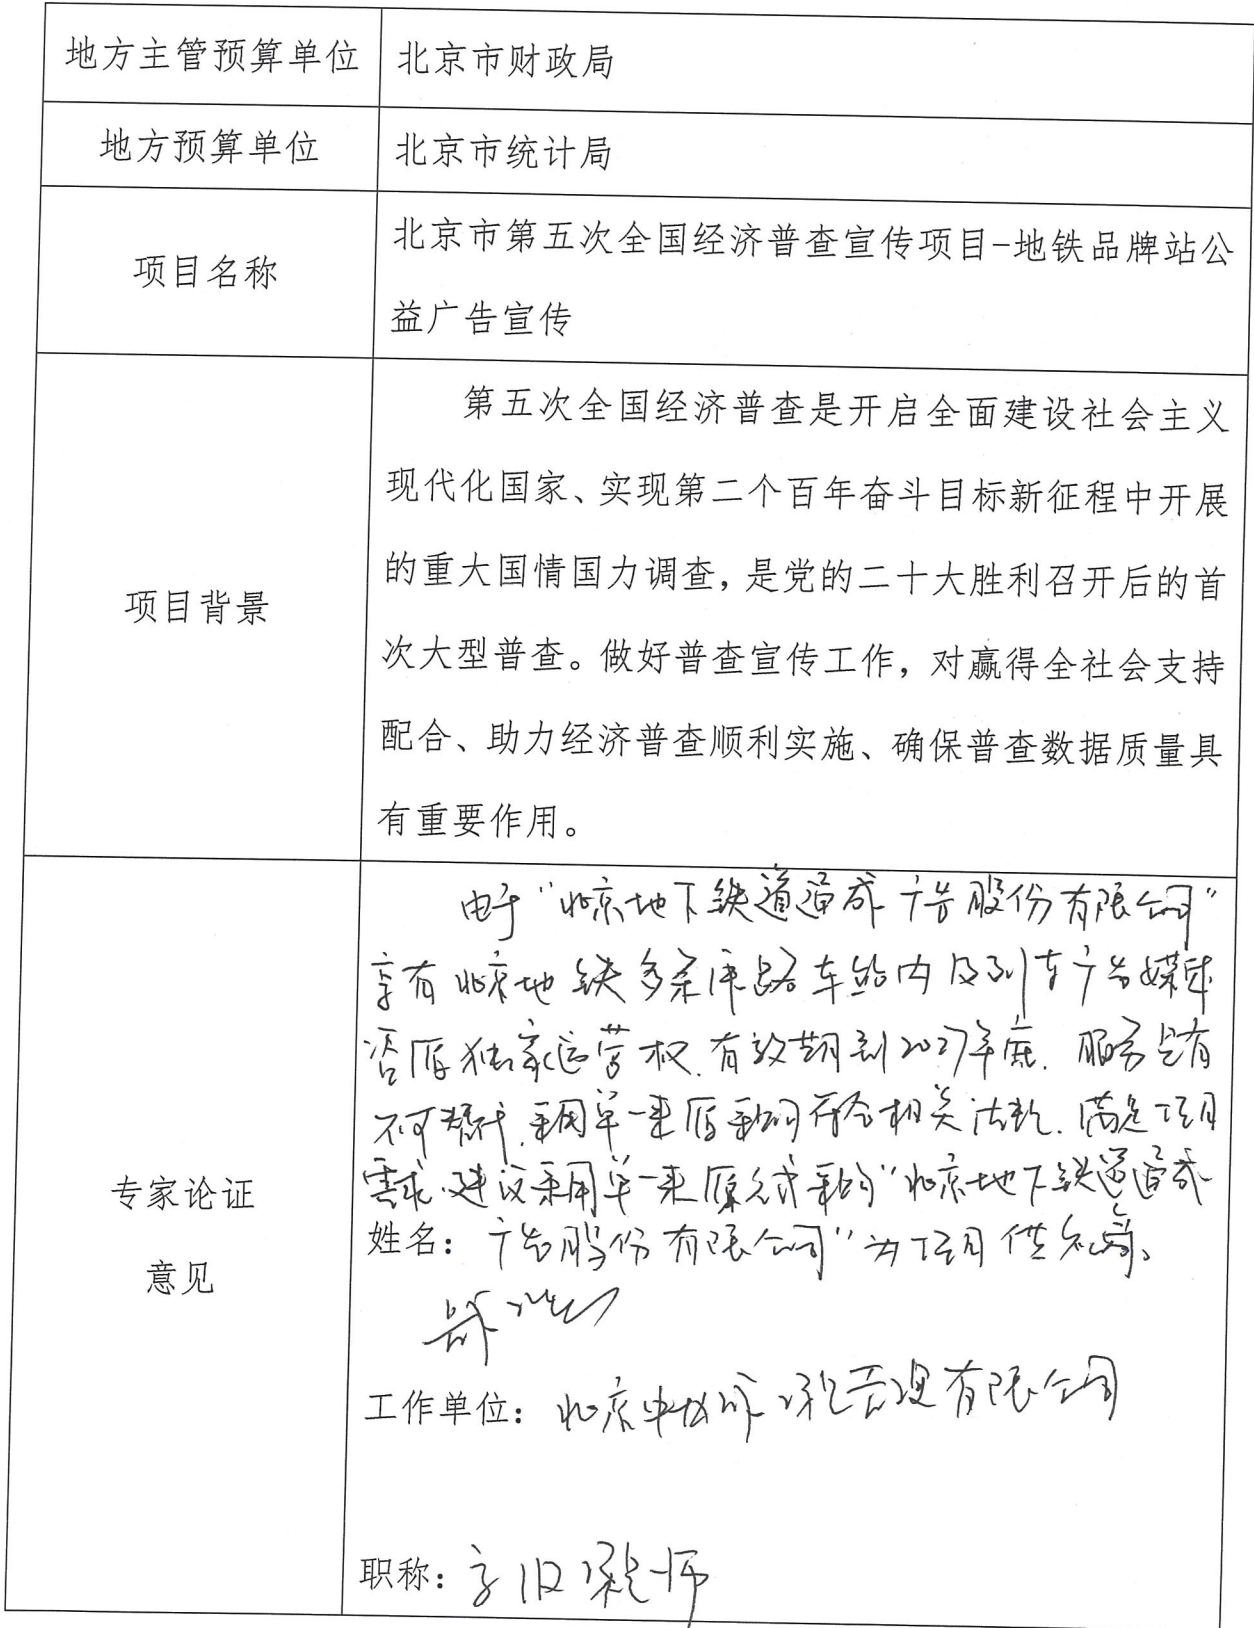 地方主管预算单位
北京市财政局
地方预算单位
北京市统计局
项目名称
北京市第五次全国经济普查宣传项目-地铁品牌站公
益广告宣传
项目背景
第五次全国经济普查是开启全面建设社会主义
现代化国家、实现第二个百年奋斗目标新征程中开展
的重大国情国力调查，是党的二十大胜利召开后的首
次大型普查。做好普查宣传工作，对赢得全社会支持
配合、助力经济普查顺利实施、确保普查数据质量具
有重要作用。
专家论证
意见
由于“北京地下铁道通成广告股份有限公司”
享有北京地铁多条线路车站内及列车广告媒体
资源独家运营权.有效期到2027年底.服务具有
不可替代.采用单一来源采购符合相关法规.满足项目
需求.建议采用单一来源方式采购“北京地下铁道通成
姓名：广告股份有限公司”为项目供应商。
工作单位：北京中 有限公司
职称：高级 师